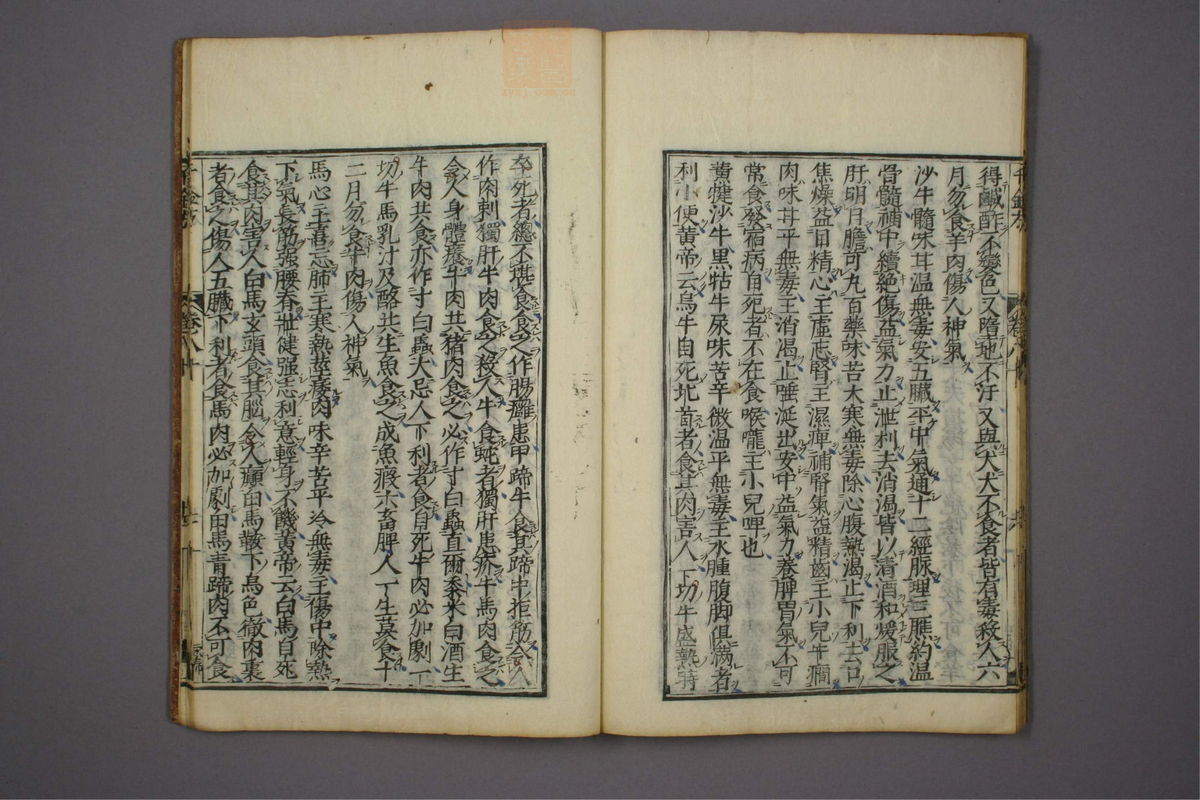 得鹹酢不變色又墮地不汙又與犬犬不食者皆有毒殺人六
月勿食羊肉傷人神氣
沙牛髓味甘溫無毒安五臟平中氣通十二經脉理三膲約溫
骨髓補中續絕傷益氣力止泄利去消渴皆以清酒和煖服之
肝明目膽可丸百藥味苦大寒無毒除心腹熱渴止下利去口
焦燥益目精心主虛忘腎主濕痺補腎氣益精齒主小兒牛癇
肉味甘平無毒主消渴止唾涎出安中益氣力養脾胃氣不可
常食發宿病自死者不在食喉嚨主小兒啤也
黃犍沙牛黑牯牛尿味苦辛微溫平無毒主水腫腹脚俱滿者
利小便黃帝云烏牛自死北首者食其肉害人一切牛盛熱時
卒死者總不堪食食之作腸癰患甲蹄牛食其蹄中拒筋令人
作肉刺獨肝牛肉食之殺人牛食蛇者獨肝患疥牛馬肉食之
令人身體癢牛肉共猪肉食之必作寸白蟲直爾黍米白酒生
牛肉共食亦作寸白蟲大忌人下利者食自死牛肉必加劇一
切牛馬乳汁及酪共生魚食之成魚瘕六畜脾人一生莫食十
二月勿食牛肉傷人神氣
馬心主喜忘肺主寒熱莖痿肉味辛苦平冷無毒主傷中除熱
下氣長筋強腰脊壯健強志利意輕身不饑黃帝云白馬自死
食其肉害人白馬玄頭食其腦令人癲白馬鞍下烏色徹肉裏
者食之傷人五臟下利者食馬肉必加劇白馬青蹄肉不可食